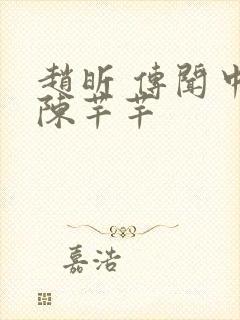 趙昕 傳聞中
陳芊芊
嘉浩